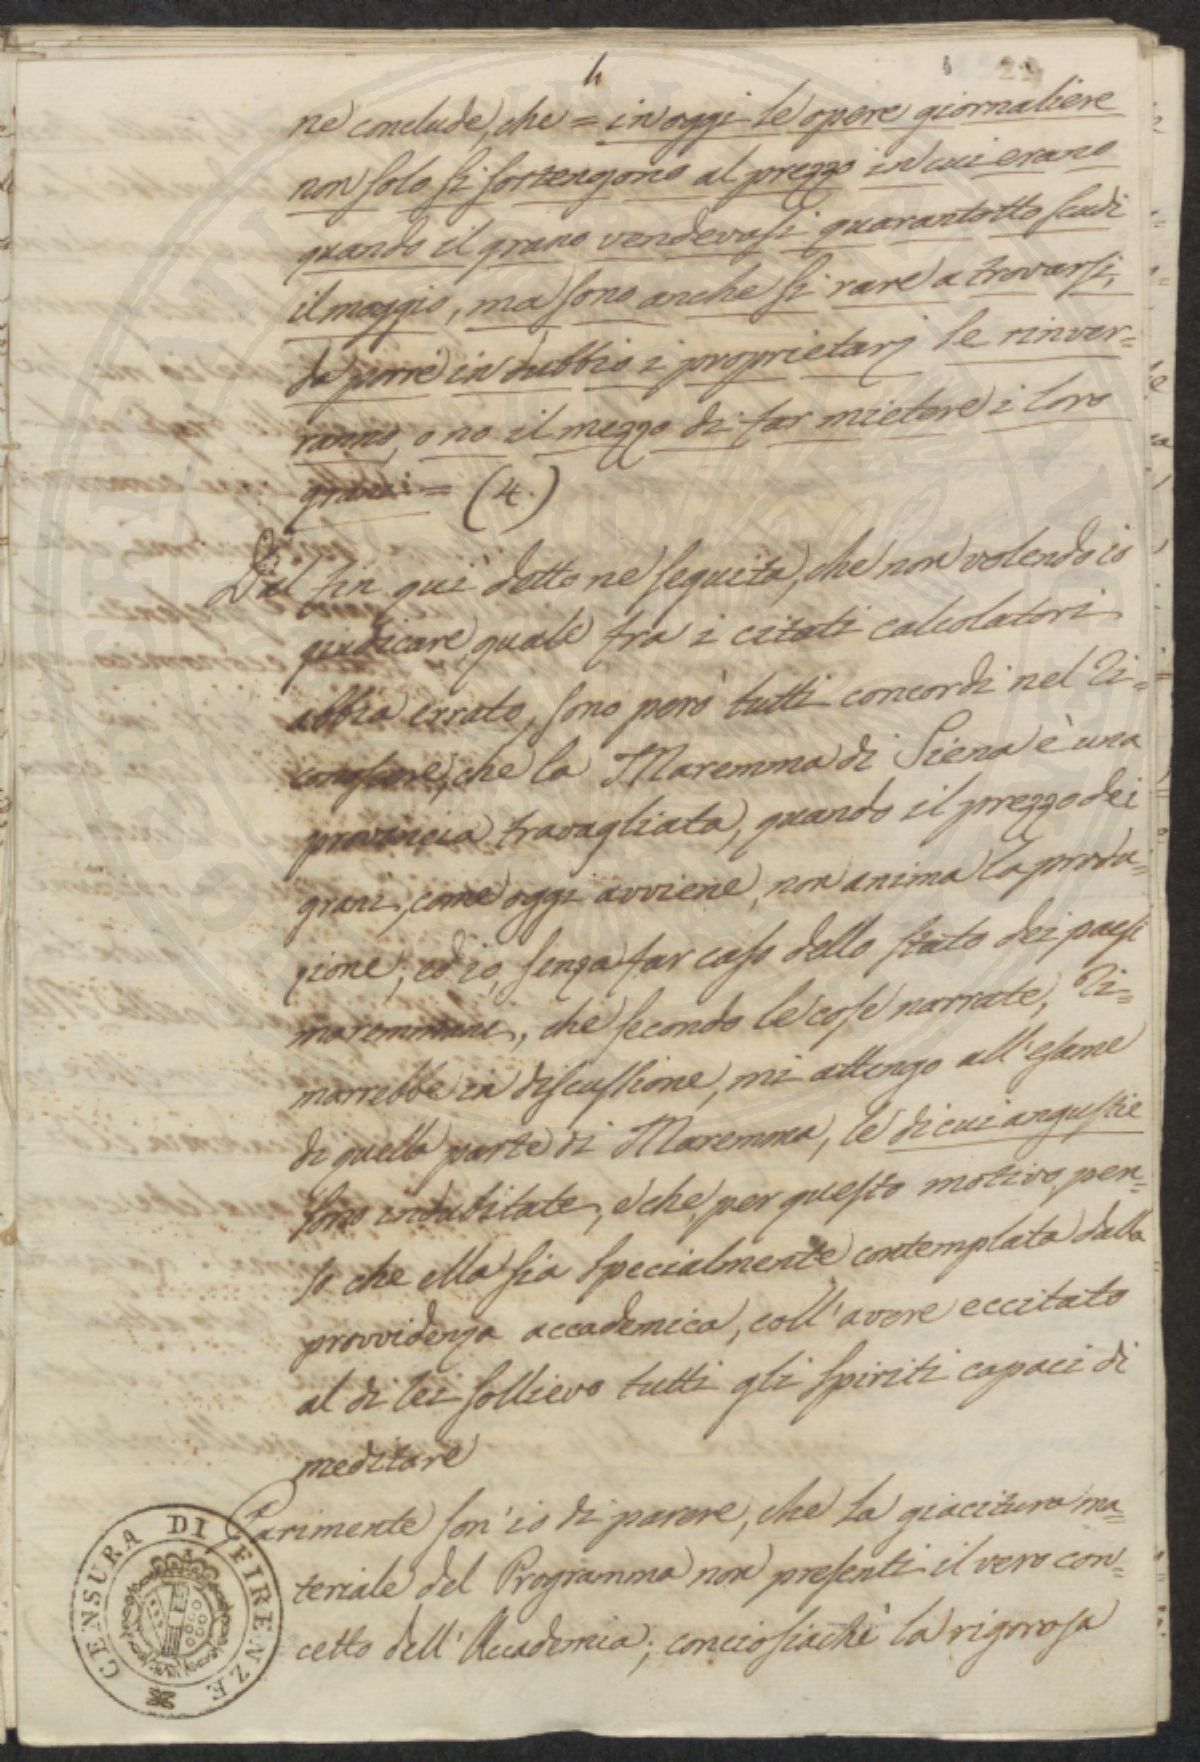 4 22
ne conclude, che = in oggi le opere giornaliere
non solo si sostengono al prezzo in cui erano
quando il grano vendevasi quarantotto scudi
il moggio, ma sono anche si rare a trovarsi,
da porre in dubbio i proprietarj le rinver=
ranno, o no il mezzo di far mietere i loro
grani = (4.)
Dal fin qui detto ne seguita, che non volendo io
giudicare, quale fra i citati calcolatori
abbia errato, sono però tutti concordi nel ri=
conoscere, che la Maremma di Siena è una
provincia travagliata, quando il prezzo dei
grani, come oggi avviene, non anima la produ=
zione; ed io, senza far caso dello stato dei paesi
maremmani, che secondo le cose narrate, ri=
marrebbe in discussione, mi attengo all'esame
di quella parte di Maremma, le di cui angustie
sono indubitate, e che, per questo motivo, pen=
so che ella sia specialmente contemplata dalla
provvidenza accademica, coll'avere eccitato
al di lei sollievo tutti gli spiriti capaci di
meditare
Parimente son'io di parere, che la giacitura ma=
teriale del Programma non presenti il vero con=
cetto dell'Accademia; conciosiachè la rigorosa
CENSURA DI FIRENZE